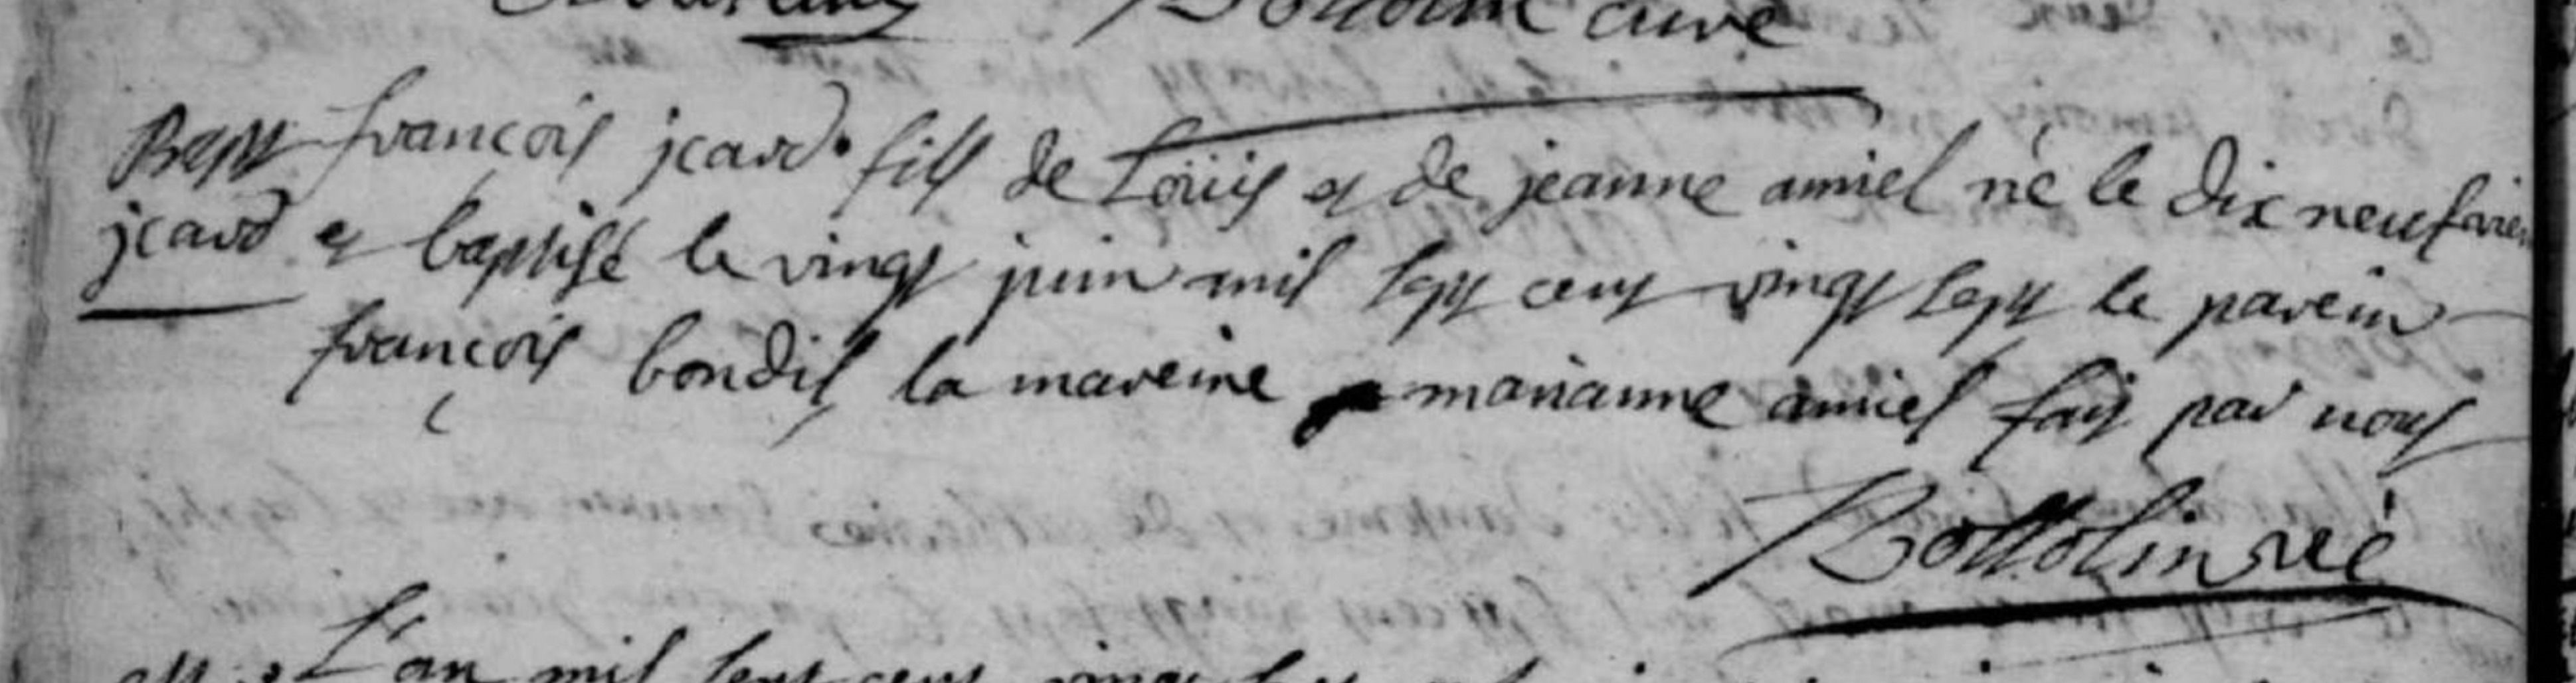 curé
Bapt françois jcard fils de Loüis et de jeanne amiel né le dix neuf
jcard et baptisé le vingt juin mil sept cent vingt sept le parein
françois bondil la mareine marianne amiel fait par nous
L'an mil sept cent vingt sept